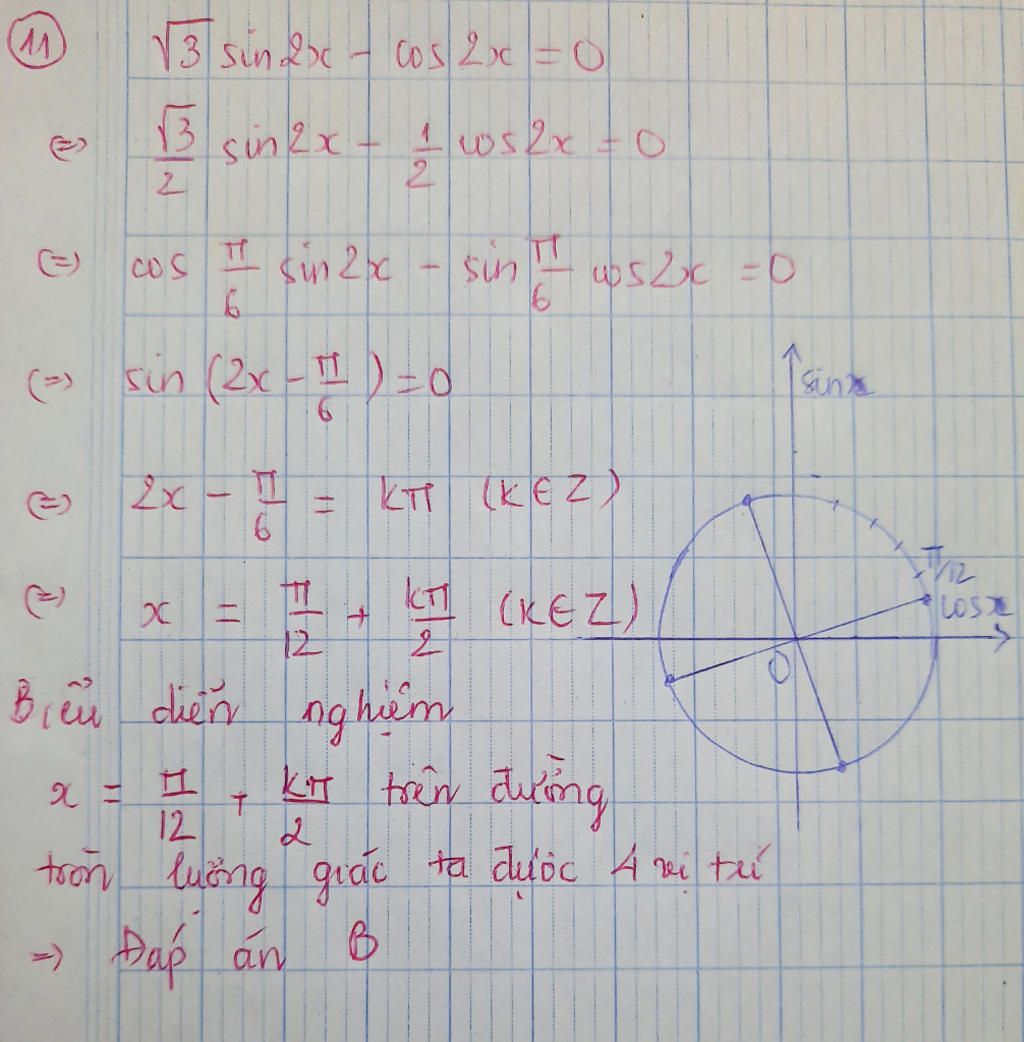 11
√3 sin2x - cos2x = 0
(=) √3/2 sin2x - 1/2 cos2x = 0
(=) cos π/6 sin2x - sin π/6 cos2x = 0
(=) sin (2x - π/6) = 0
sinx
(=) 2x - π/6 = kπ (k∈Z)
π/12
(=) x = π/12 + kπ/2 (k∈Z)
cosx
O
Biểu diễn nghiệm
x = π/12 + kπ/2 trên đường
tròn lượng giác ta được 4 vị trí
=) Đáp án B